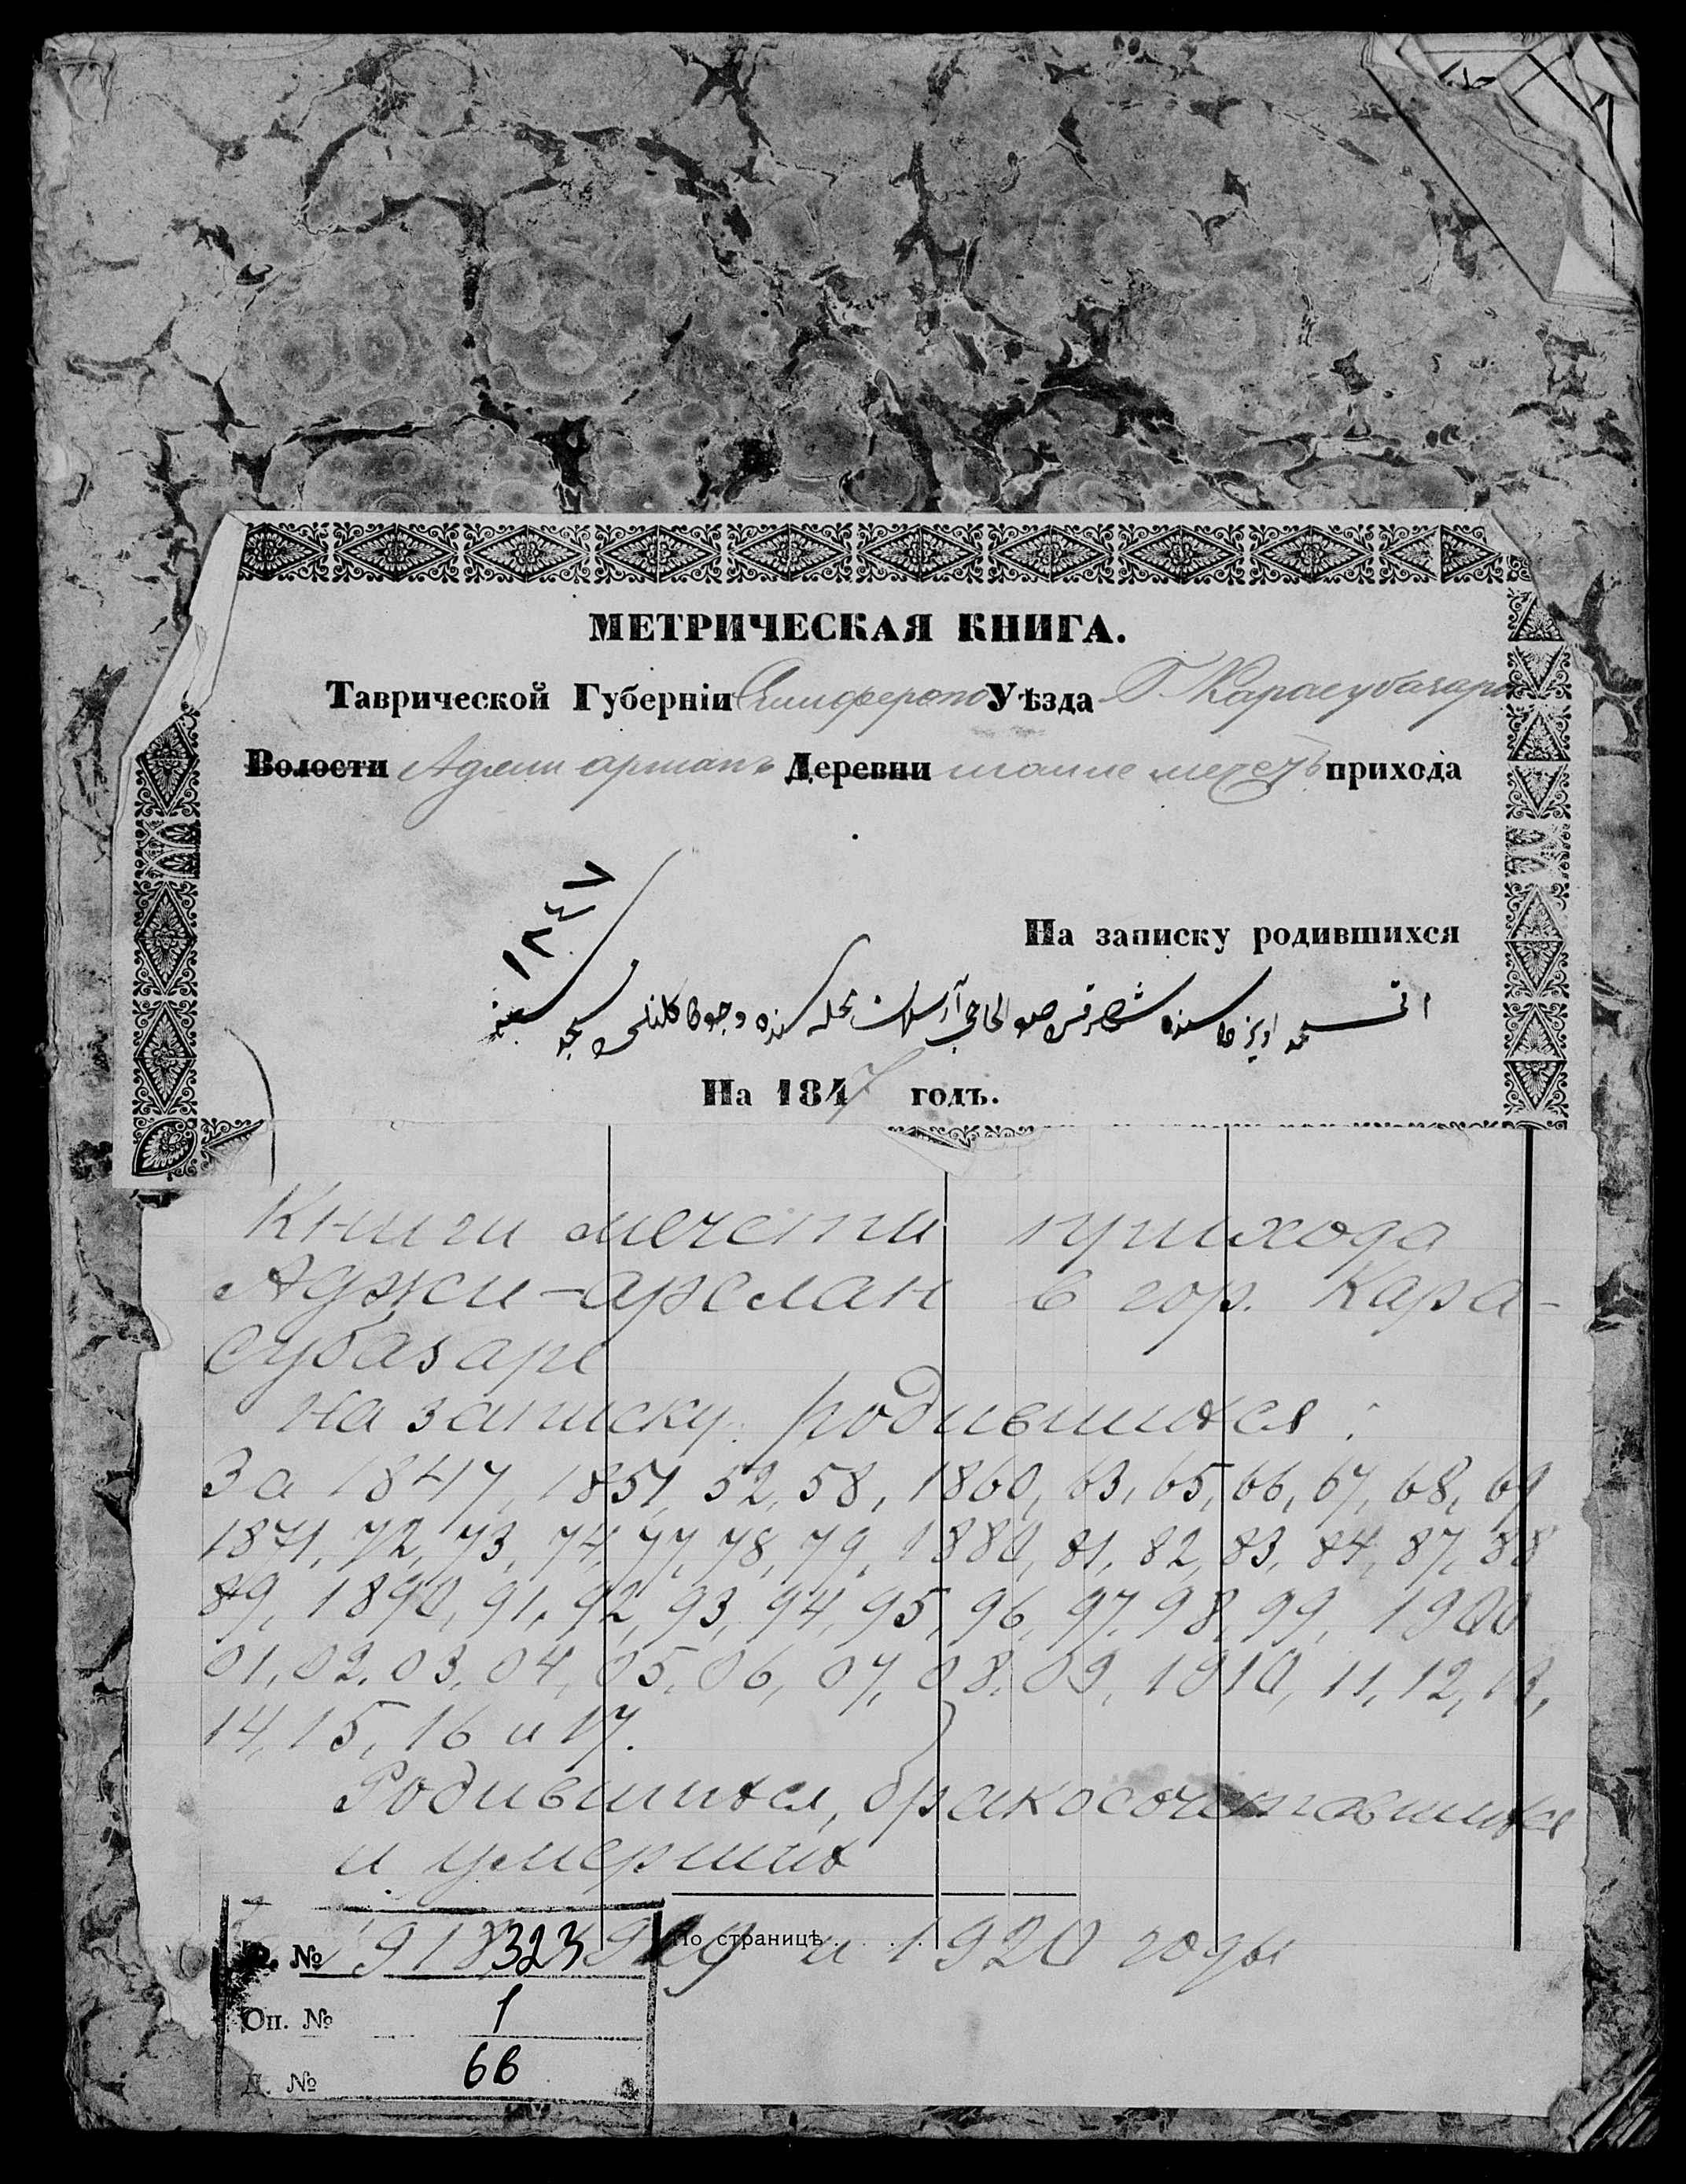 МЕТРИЧЕСКАЯ КНИГА.
Таврической Губерніи Симферопо Уѣзда Г. Карасубазара
Волости Аджи Деревни мечеть прихода
١٨٤٧
На записку родившихся
سنه
На 1847 годъ.
Книги мечети прихода
Аджи-арслан в гор. Кара-
субазаре
на записку родившихся:
За 1847, 1851, 52, 58, 1860, 63, 65, 66, 67, 68, 69
1871, 72, 73, 74, 77, 78, 79, 1880, 81, 82, 83, 84, 87, 88
89, 1890, 91, 92, 93, 94, 95, 96, 97, 98, 99, 1900
01, 02, 03, 04, 05, 06, 07, 08, 09, 1910, 11, 12, 13,
14, 15, 16 и 17.
Родившихся, бракосочетавшихся
и умерших
1918, 1919 и 1920 годы
По страницѣ
Ф. № 323
Оп. № 1
Д. № 66